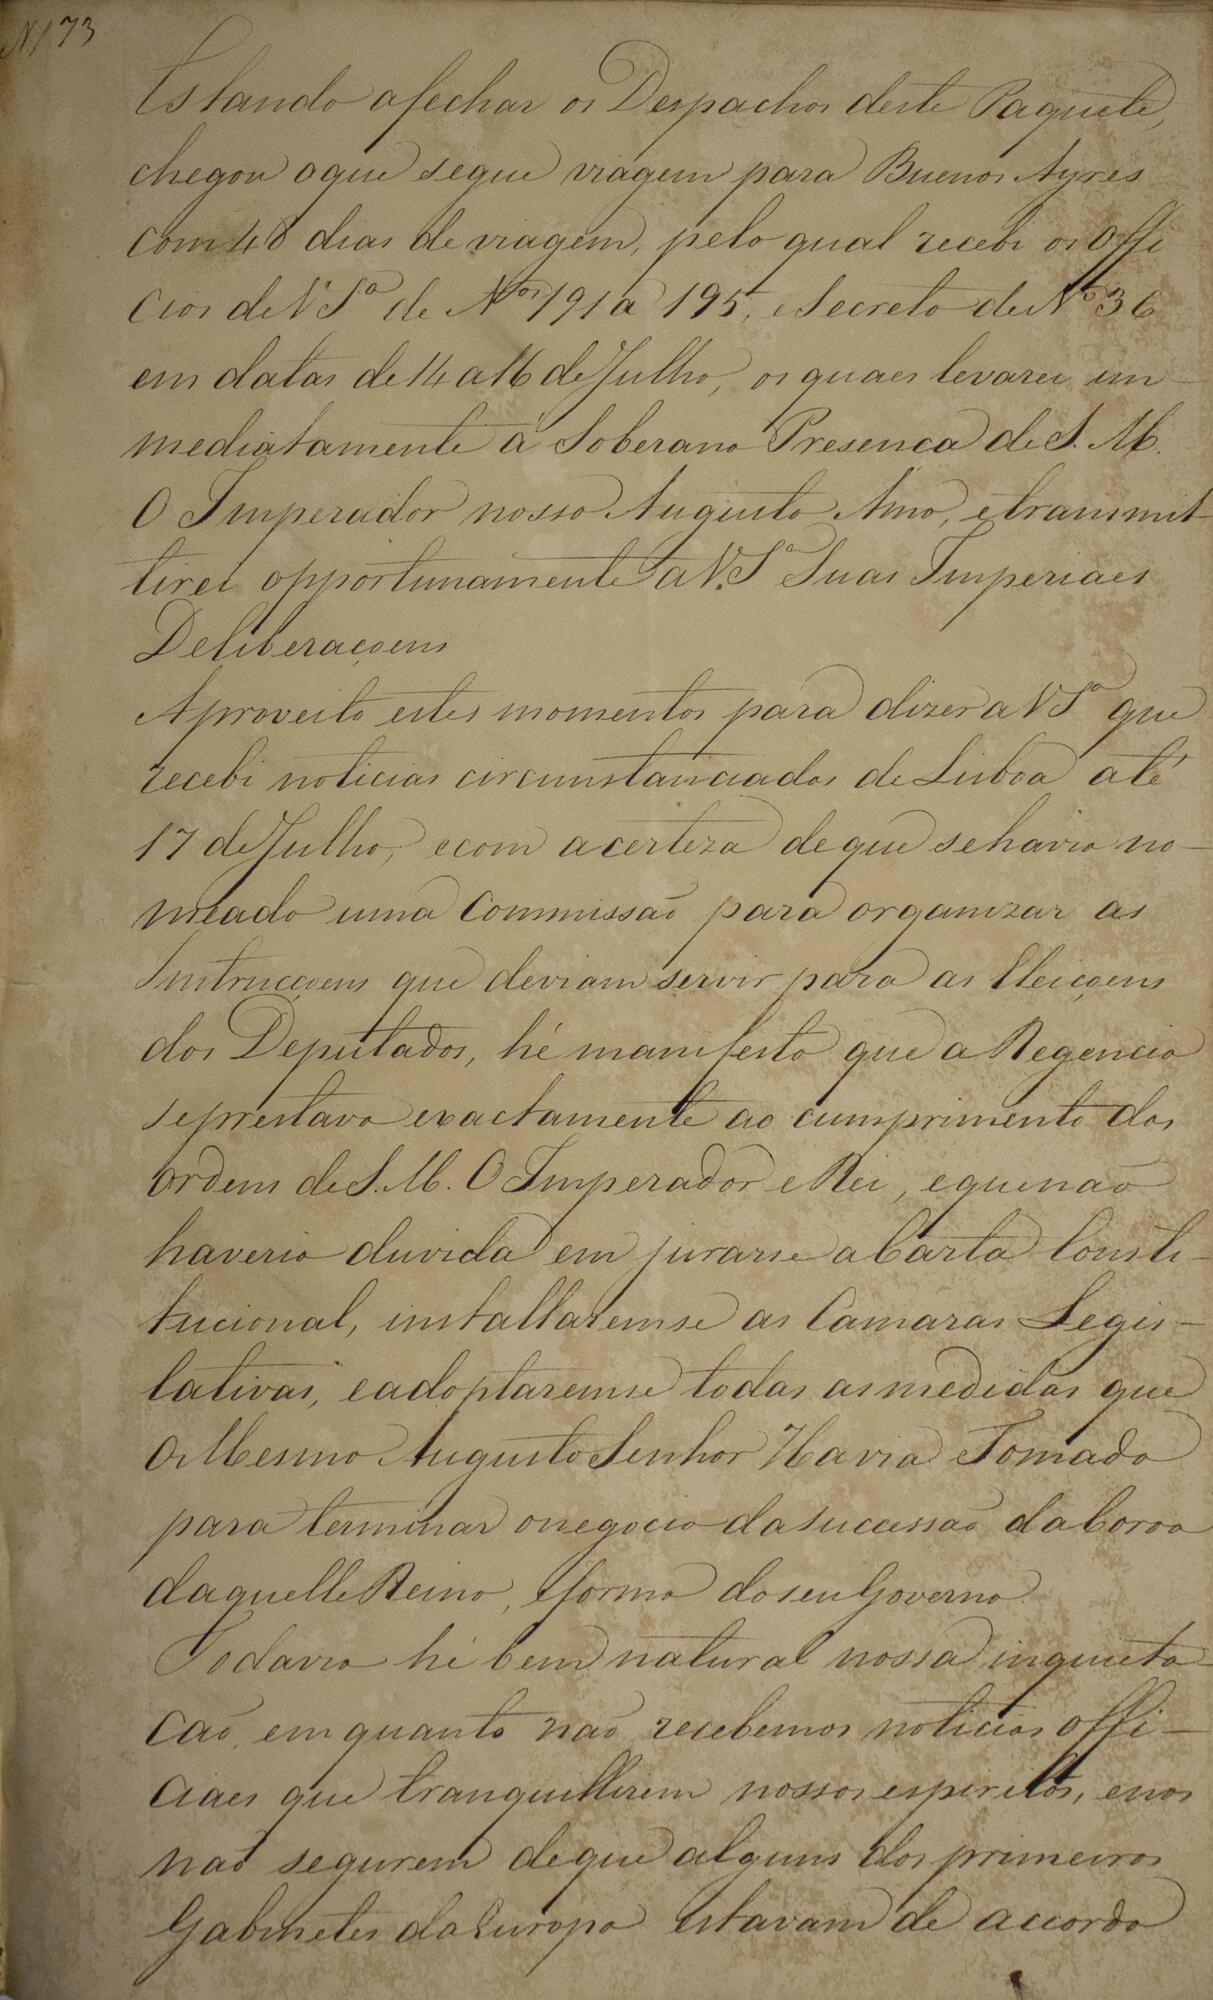 N 173
Estando afechar os Despachos deste Paquete,
chegou oque segue viagem para Buenos Ayres
com 48 dias de viagem, pelo qual recebi os Offi
cios de V Sª de Nos 191 a 195, e Secreto de Nº 36
em datas de 14 a 16 de Julho, os quaes levarei im-
mediatamente á Soberana Presenca de S. M.
O Imperador nosso Augusto Amo, e transmit-
tirei opportunamente a V.Sª Suas Imperiaes
Deliberaçoens
Aproveito estes momentos para dizer a V Sª que
recebi noticias circunstanciadas de Lisboa até
17 de Julho, e com a certeza de que se havia no-
meado uma Commissão para organizar as
Instrucçoens que deviam servir para as Eleiçoens
dos Deputados, hé manifesto que a Regencia
se prestava exactamente ao cumprimento das
ordens de S. M. O Imperador e Rei, e que não
haveria duvida em jurarse a Carta Consti-
tucional, installaremse as Camaras Legis-
lativas, e adoptaremse todas as medidas que
O Mesmo Augusto Senhor Havia Tomado
para terminar o negocio da successão da Coroa
daquelle Reino, e forma do seu Governo.
Todavia hé bem natural nossa inquieta-
cão, em quanto não recebemos noticias offi-
ciaes que tranquillizem nossos espiritos, e nos
não segurem de que alguns dos primeiros
Gabinetes da Europa estavam de accordo